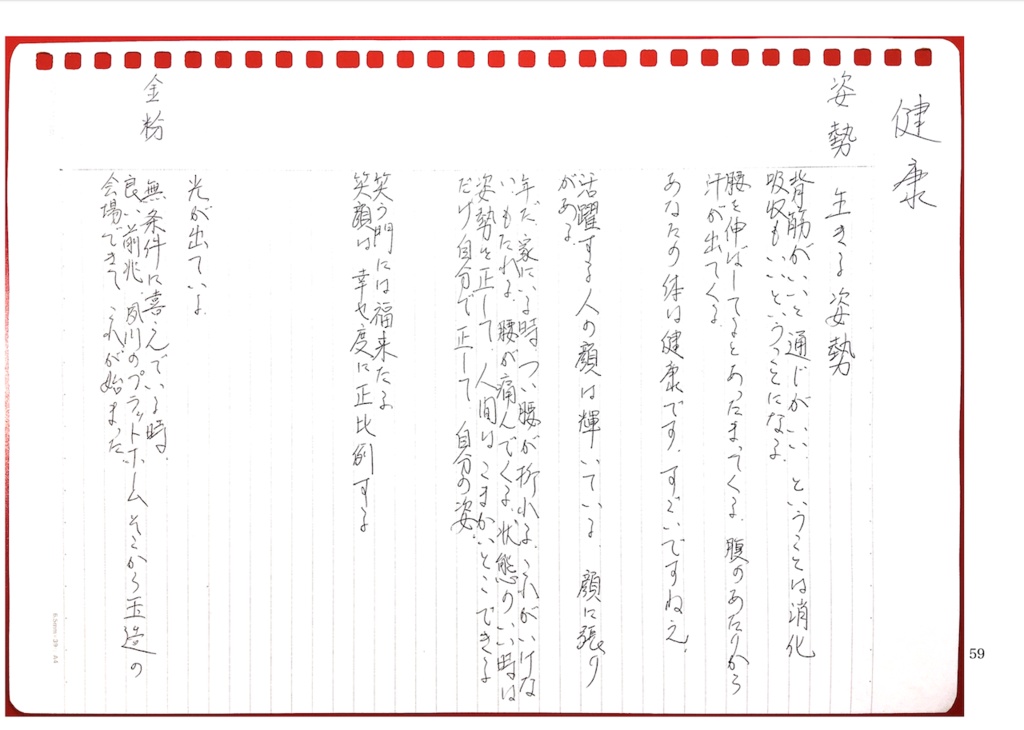 健康
姿勢
生きる姿勢
背筋がいいと通じがいい、ということは消化
吸収もいいということになる。
腰を伸ばしてるとあったまってくる。腹のあたりから
汗が出てくる。
あなたの体は健康です。すごいですねえ。
活躍する人の顔は輝いている。顔に張り
がある。
年だ、家にいる時、つい腰が折れる。これがいけな
い。もたれる。腰が痛んでくる。状態のいい時は
姿勢を正して、人間はこまかいとこできる
だけ自分で正して 自分の姿。
笑う門には福来たる
笑顔は幸せ度に正比例する
金粉
光が出ていよ。
無条件に喜んでいる時。
良い前兆、夙川のプラットホーム そこから玉造の
会場できて これが始まった。
59